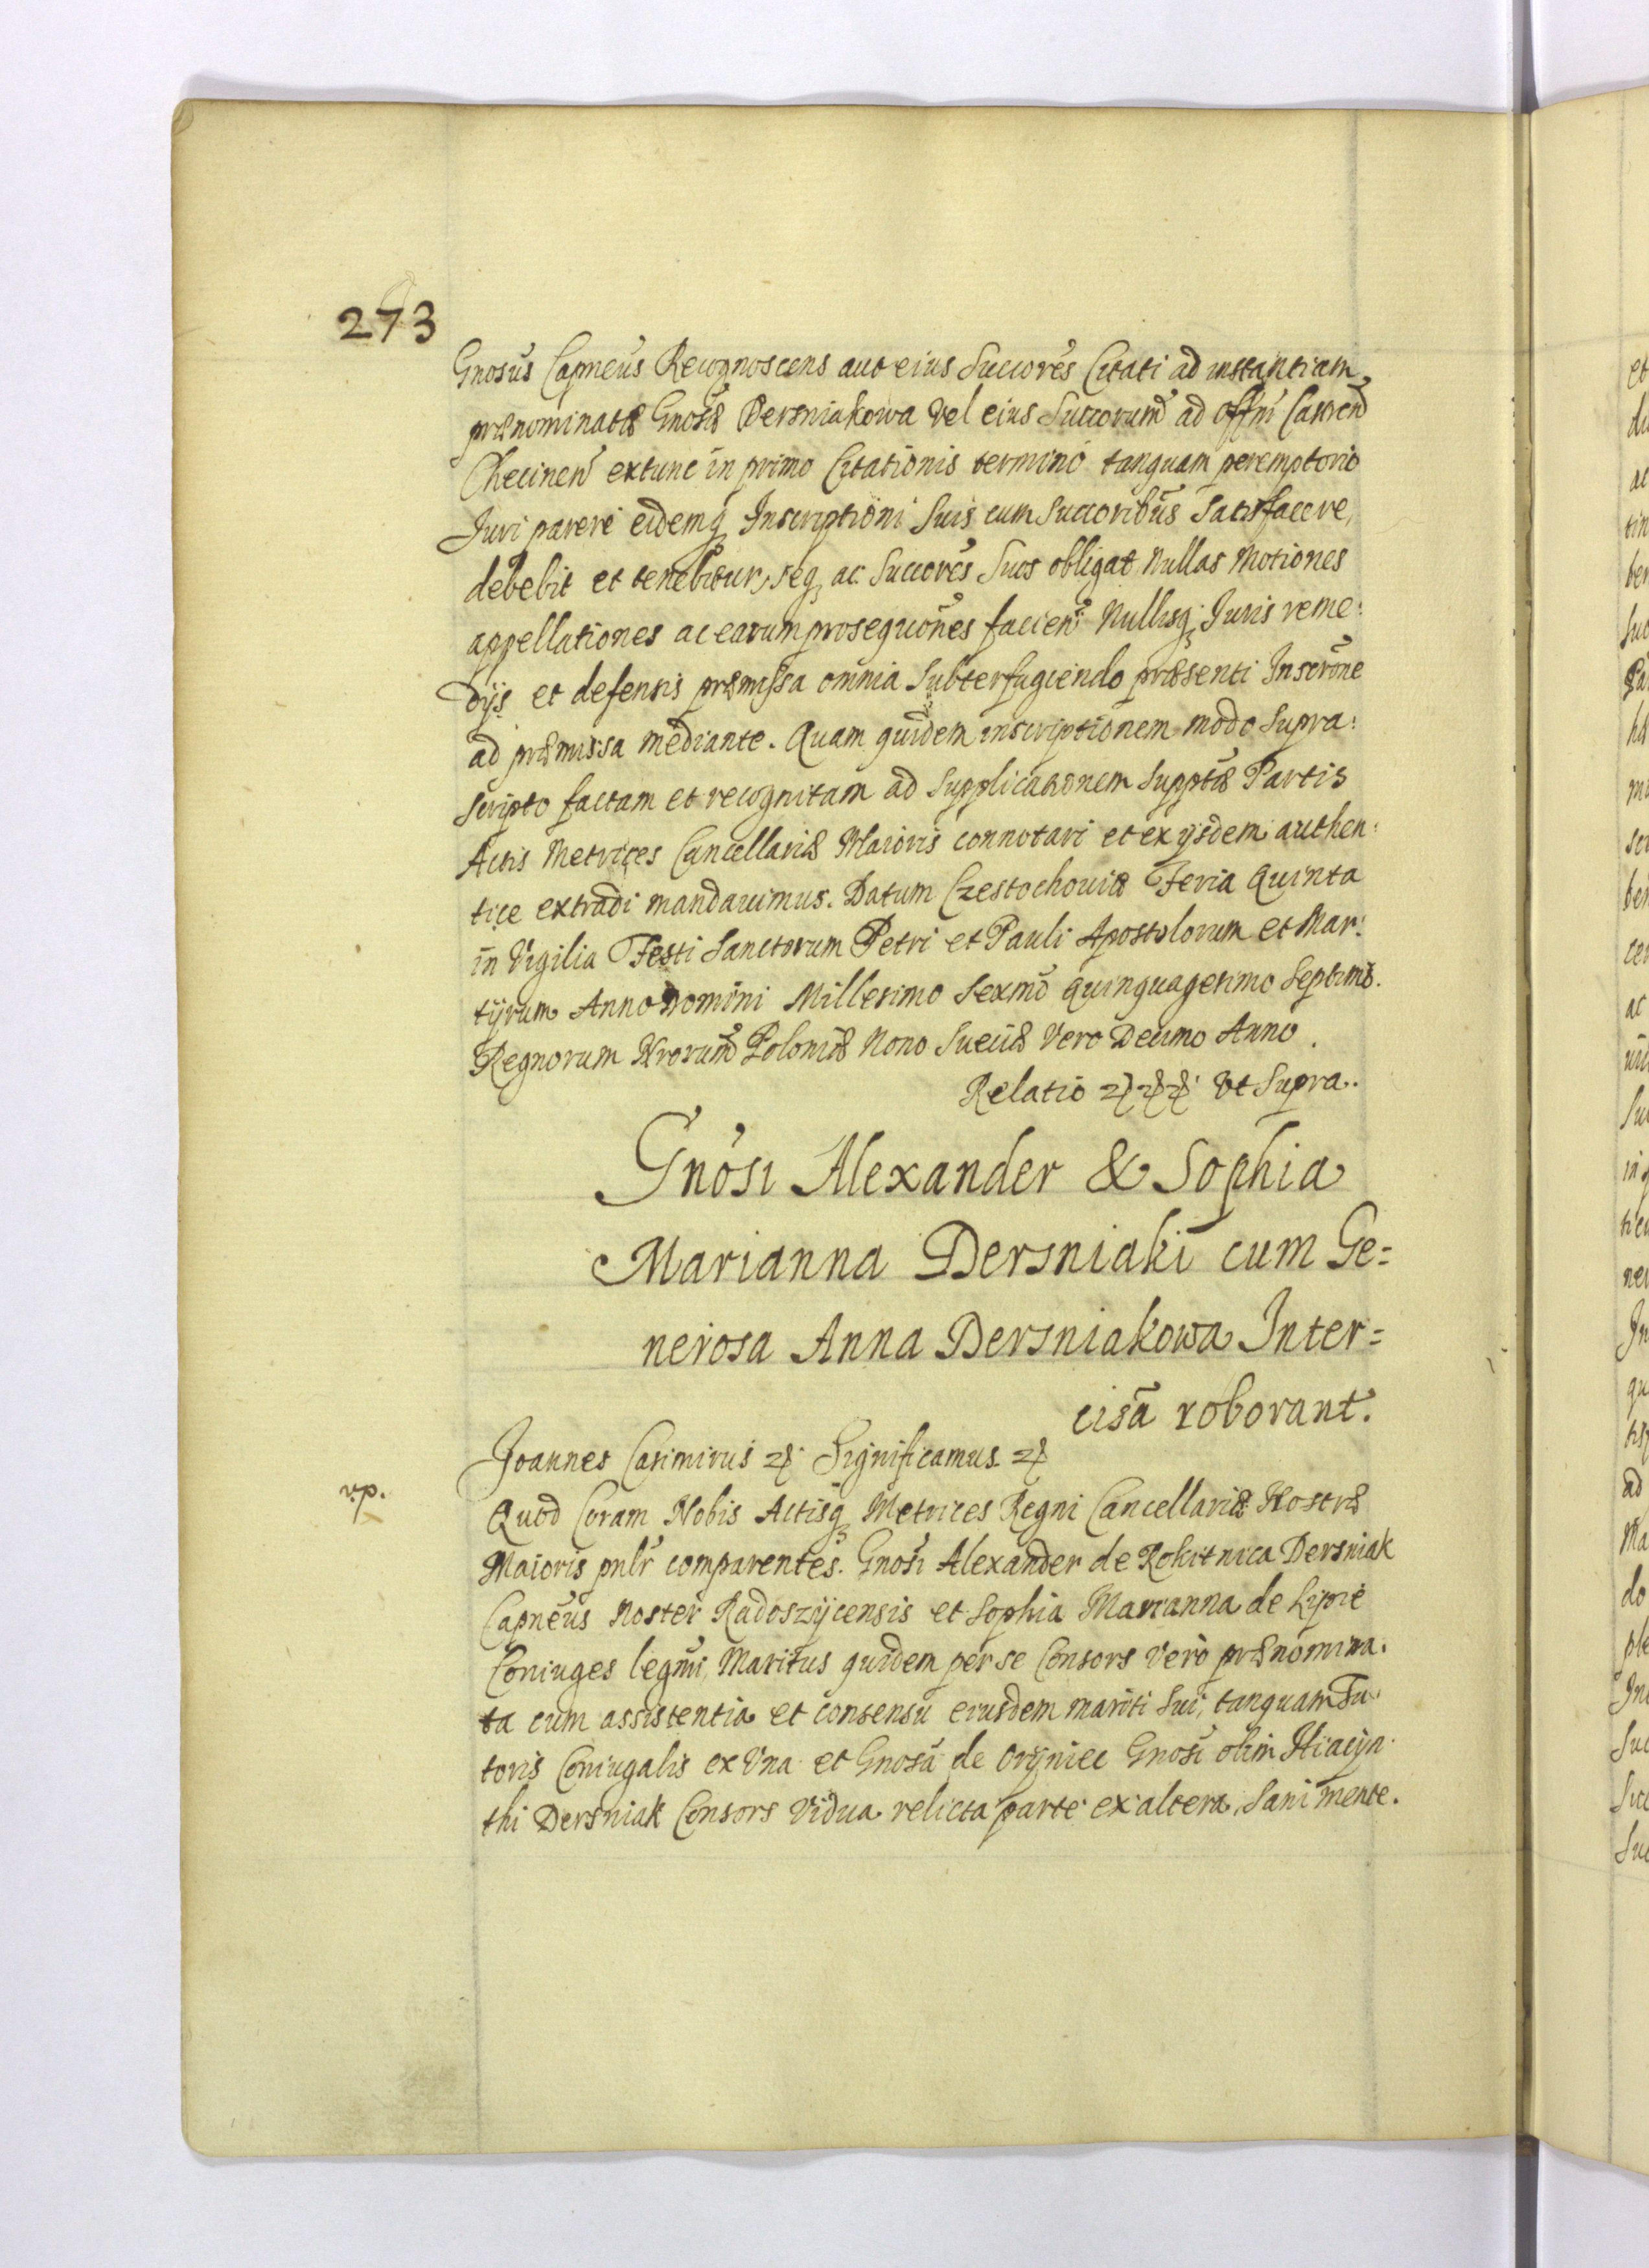 273
Gnosus Capneus Recognoscens aut eius Succores Citati ad instantiam
prænominatæ Gnosæ Dersniakowa vel eius Succorum ad offm Castren
Checinen extunc in primo Citationis termino tanquam peremptorio
Juri parere eidemq Inscriptioni suis cum Succoribus Satisfacere,
debebit et tenebitur, seq ac Succores Suos obligat Nullas Motiones
appellationes ac earum prosequones facien: Nullisq Juris reme:
dijs et defensis præmissa omnia Subterfugiendo præsenti Inscrone
ad præmissa mediante. Quam quidem inscriptionem modo Supra:
scripto factam et recognitam ad Supplicationem Supptæ Partis
Actis Metrices Cancellariæ Maioris connotari et ex ijsdem authen:
tice extradi mandavimus. Datum Czestochoviæ Feria Quinta
in Vigilia Festi Sanctorum Petri et Pauli Apostolorum et Mar:
tyrum Anno Domini Millesimo Sexmo Quinquagesimo Septimo.
Regnorum Nrorum Poloniæ Nono Sueciæ Vero Decimo Anno.
Relatio ut Supra.
Gnosi Alexander & Sophia
Marianna Dersniaki cum Ge=
nerosa Anna Dersniakowa Inter=
cisa roborant.
Joannes Casimirus Significamus
Quod Coram Nobis Actisq Metrices Regni Cancellariæ Nostræ
Maioris pnlr comparentes. Gnosi Alexander de Rokitnica Dersniak
Capneus Noster Radoszycensis et Sophia Marianna de Lipie
Coniuges legmi, Maritus quidem per se Consors vero prænomina:
ta cum assistentia et consensu eiusdem mariti Sui, tanquam Tu:
toris Coniugalis ex Una et Gnosa de Oryniec Gnosi olim Hiacyn:
thi Dersniak Consors Vidua relicta parte ex altera, Sani mente.